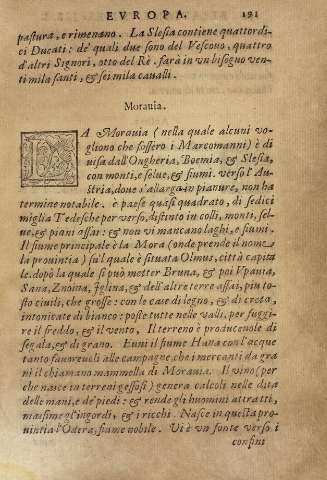 EVROPA. 191
pastura, e rimenano. La Slesia contiene quattordi-
ci Ducati: de' quali due sono del Vescouo, quattro
d'altri Signori, otto del Rè. farà in vn bisogno ven-
ti mila fanti, & sei mila caualli.
Morauia.
LA Morauia (nella quale alcuni vo-
gliono che fossero i Marcomanni) è di
uisa dall'Ongheria, Boemia, & Slesia,
con monti, e selue, & fiumi. verso l'Au
stria, doue s'allarga in pianure, non ha
termine notabile. è paese quasi quadrato, di sedici
miglia Tedesche per verso, distinto in colli, monti, sel-
ue, & piani assai: & non vi mancano laghi, e fiumi.
Il fiume principale è la Mora (onde prende il nome
la prouintia) sul quale è situata Olmus, città capita
le. dopò la quale si può metter Bruna, & poi
Sana, Znoima, Iglina, & dell'altre terre assai, più to-
sto ciuili, che grosse: con le case di legno, & di creta,
intonicate di bianco: poste tutte nelle valli, per fuggi-
re il freddo, & il vento. Il terreno è producenole di
segala, & di grano. Euui il fiume Hana con l'acque
tanto fauoreuoli alle campagne, che i mercanti da gra
ni il chiamano mammella di Morauia. Il vino (per
che nasce in terreni gessosi) genera calcoli nelle dita
delle mani, e de' piedi: & rende gli huomini attratti,
massime gl'ingordi, & i ricchi. Nasce in questa pro-
uintia l'Odera, fiume nobile. Vi è vn fonte verso i
confini